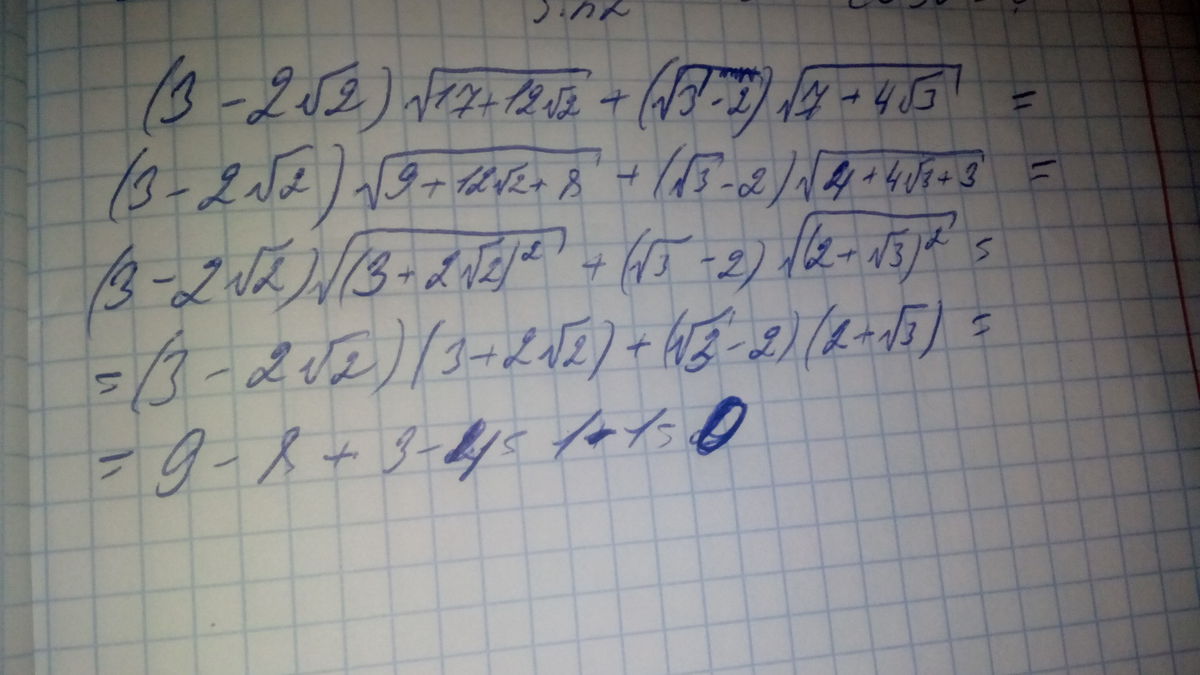 (3 - 2√2) √(17+12√2) + (√3 - 2) √(7 + 4√3) =
(3 - 2√2) √(9+12√2+8) + (√3 - 2) √(4+4√3+3) =
(3 - 2√2) √((3+2√2)²) + (√3 - 2) √((2+√3)²) =
= (3 - 2√2) (3+2√2) + (√3 - 2) (2+√3) =
= 9 - 8 + 3 - 4 = 1 - 1 = 0